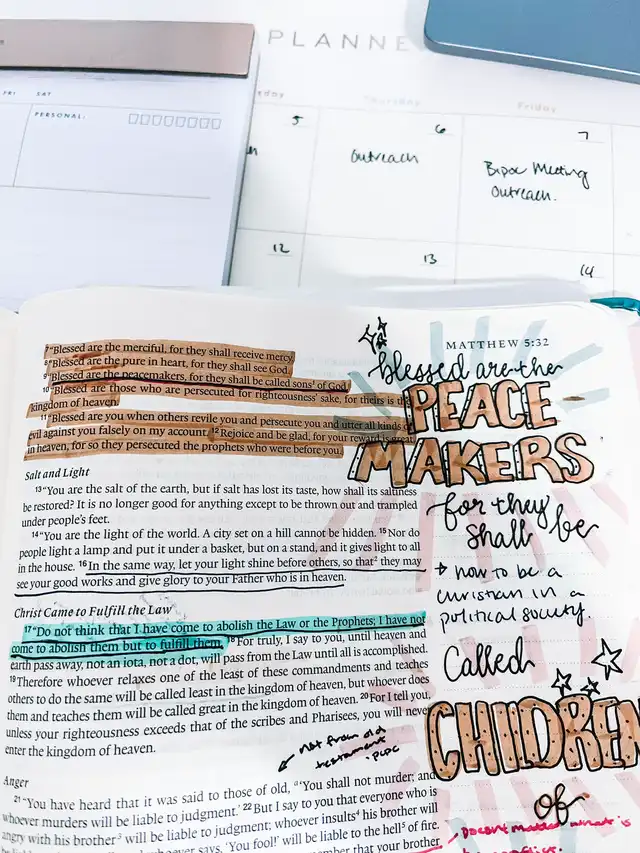 PLANNE
FRI SAT
PERSONAL:
Thursday
Friday
5
6
7
Outreach
Bipoc Meeting
Outreach.
12
13
14
7 “Blessed are the merciful, for they shall receive mercy.
8 “Blessed are the pure in heart, for they shall see God.
9 “Blessed are the peacemakers, for they shall be called sons¹ of God.
10 “Blessed are those who are persecuted for righteousness' sake, for theirs is the
kingdom of heaven.
11 “Blessed are you when others revile you and persecute you and utter all kinds of
evil against you falsely on my account. 12 Rejoice and be glad, for your reward is great
in heaven, for so they persecuted the prophets who were before you.
Salt and Light
13 “You are the salt of the earth, but if salt has lost its taste, how shall its saltiness
be restored? It is no longer good for anything except to be thrown out and trampled
under people's feet.
14 “You are the light of the world. A city set on a hill cannot be hidden. 15 Nor do
people light a lamp and put it under a basket, but on a stand, and it gives light to all
in the house. 16 In the same way, let your light shine before others, so that² they may
see your good works and give glory to your Father who is in heaven.
Christ Came to Fulfill the Law
17 “Do not think that I have come to abolish the Law or the Prophets; I have not
come to abolish them but to fulfill them. 18 For truly, I say to you, until heaven and
earth pass away, not an iota, not a dot, will pass from the Law until all is accomplished.
19 Therefore whoever relaxes one of the least of these commandments and teaches
others to do the same will be called least in the kingdom of heaven, but whoever does
them and teaches them will be called great in the kingdom of heaven. 20 For I tell you,
unless your righteousness exceeds that of the scribes and Pharisees, you will never
enter the kingdom of heaven.
not from old
testament
Anger
21 “You have heard that it was said to those of old, ᵃ‘You shall not murder; and
whoever murders will be liable to judgment.’ 22 But I say to you that everyone who is
angry with his brother³ will be liable to judgment; whoever insults⁴ his brother will
says, ‘You fool!’ will be liable to the hell⁵ of fire.
that your brother
MATTHEW 5:32
blessed are the
PEACE
MAKERS
for they
shall be
→ how to be a
christian in a
political society.
Called
CHILDREN
of
Doesn't matter